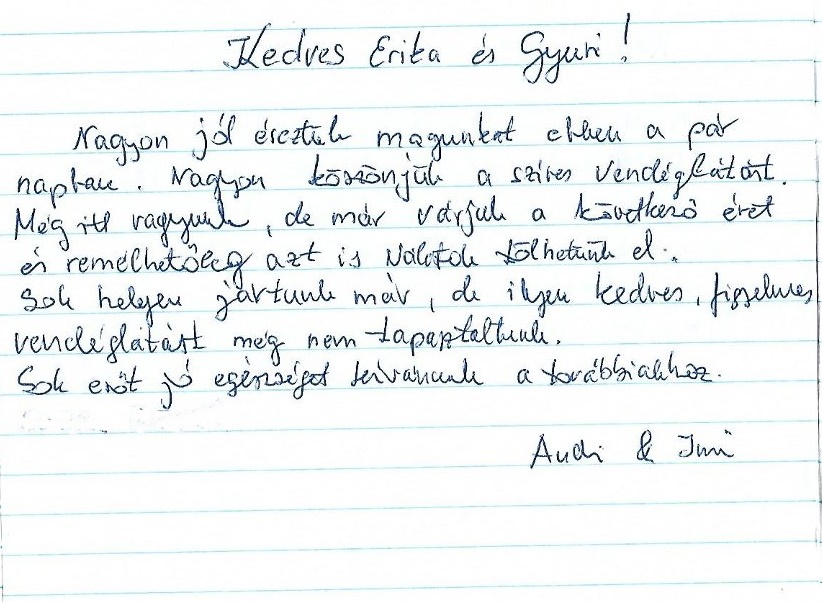 Kedves Erika és Gyuri!
Nagyon jól éreztük magunkat ebben a pár
napban. Nagyon köszönjük a szíves vendéglátást.
Még itt vagyunk, de már várjuk a következő évet
és remélhetőleg azt is Nálatok tölhetünk el.
Sok helyen jártunk már, de ilyen kedves, figyelmes
vendéglátást még nem tapaztaltunk.
Sok erőt jó egészséget kívánunk a továbbiakhoz.
Andi & Imi